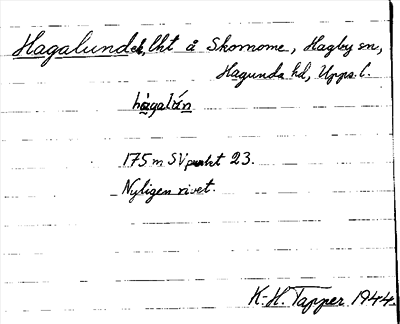 Hagalundet, lht å Skomome, Hagby sn,
Hagunda hd, Upps. l.
hàgalún
175 m SV punkt 23.
Nyligen rivet.
K-H. Tapper 1944.